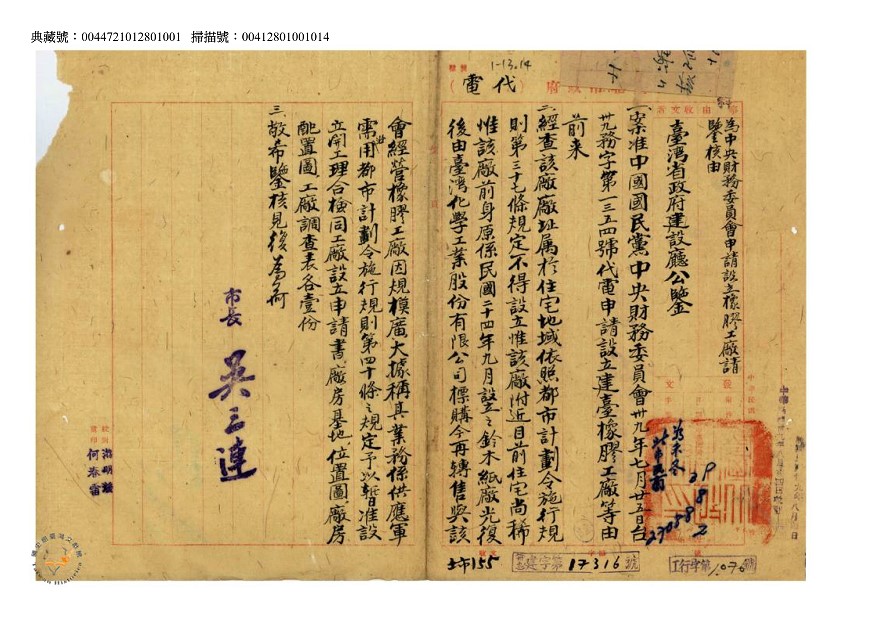 典藏號：0044721012801001 掃描號：00412801001014
1-13.14
代電
為中央財務委員會申請設立橡膠工廠請
鑒核由
臺灣省政府建設廳公鑒
一、案准中國國民黨中央財務委員會卅九年七月廿五日台
卅九務字第一三五四號代電申請設立建臺橡膠工廠等由
前来
二、經查該廠廠址属於住宅地域依照都市計劃令施行規
則第三十七條規定不得設立惟該廠附近目前住宅尚稀
惟該廠前身原係民國二十四年九月設立之鈴木紙廠光復
後由臺灣化學工業股份有限公司標購今再轉售與該
會經營橡膠工廠因規模廣大據稱其業務係供應軍
需用擬都市計劃令施行規則第四十條之規定予以暫准設
立開工理合檢同工廠設立申請書廠房基地位置圖廠房
配置圖工廠調查表各壹份
三、敬希鑒核見復為荷
市長 吳三連
建字第17316號
工行字第1070號